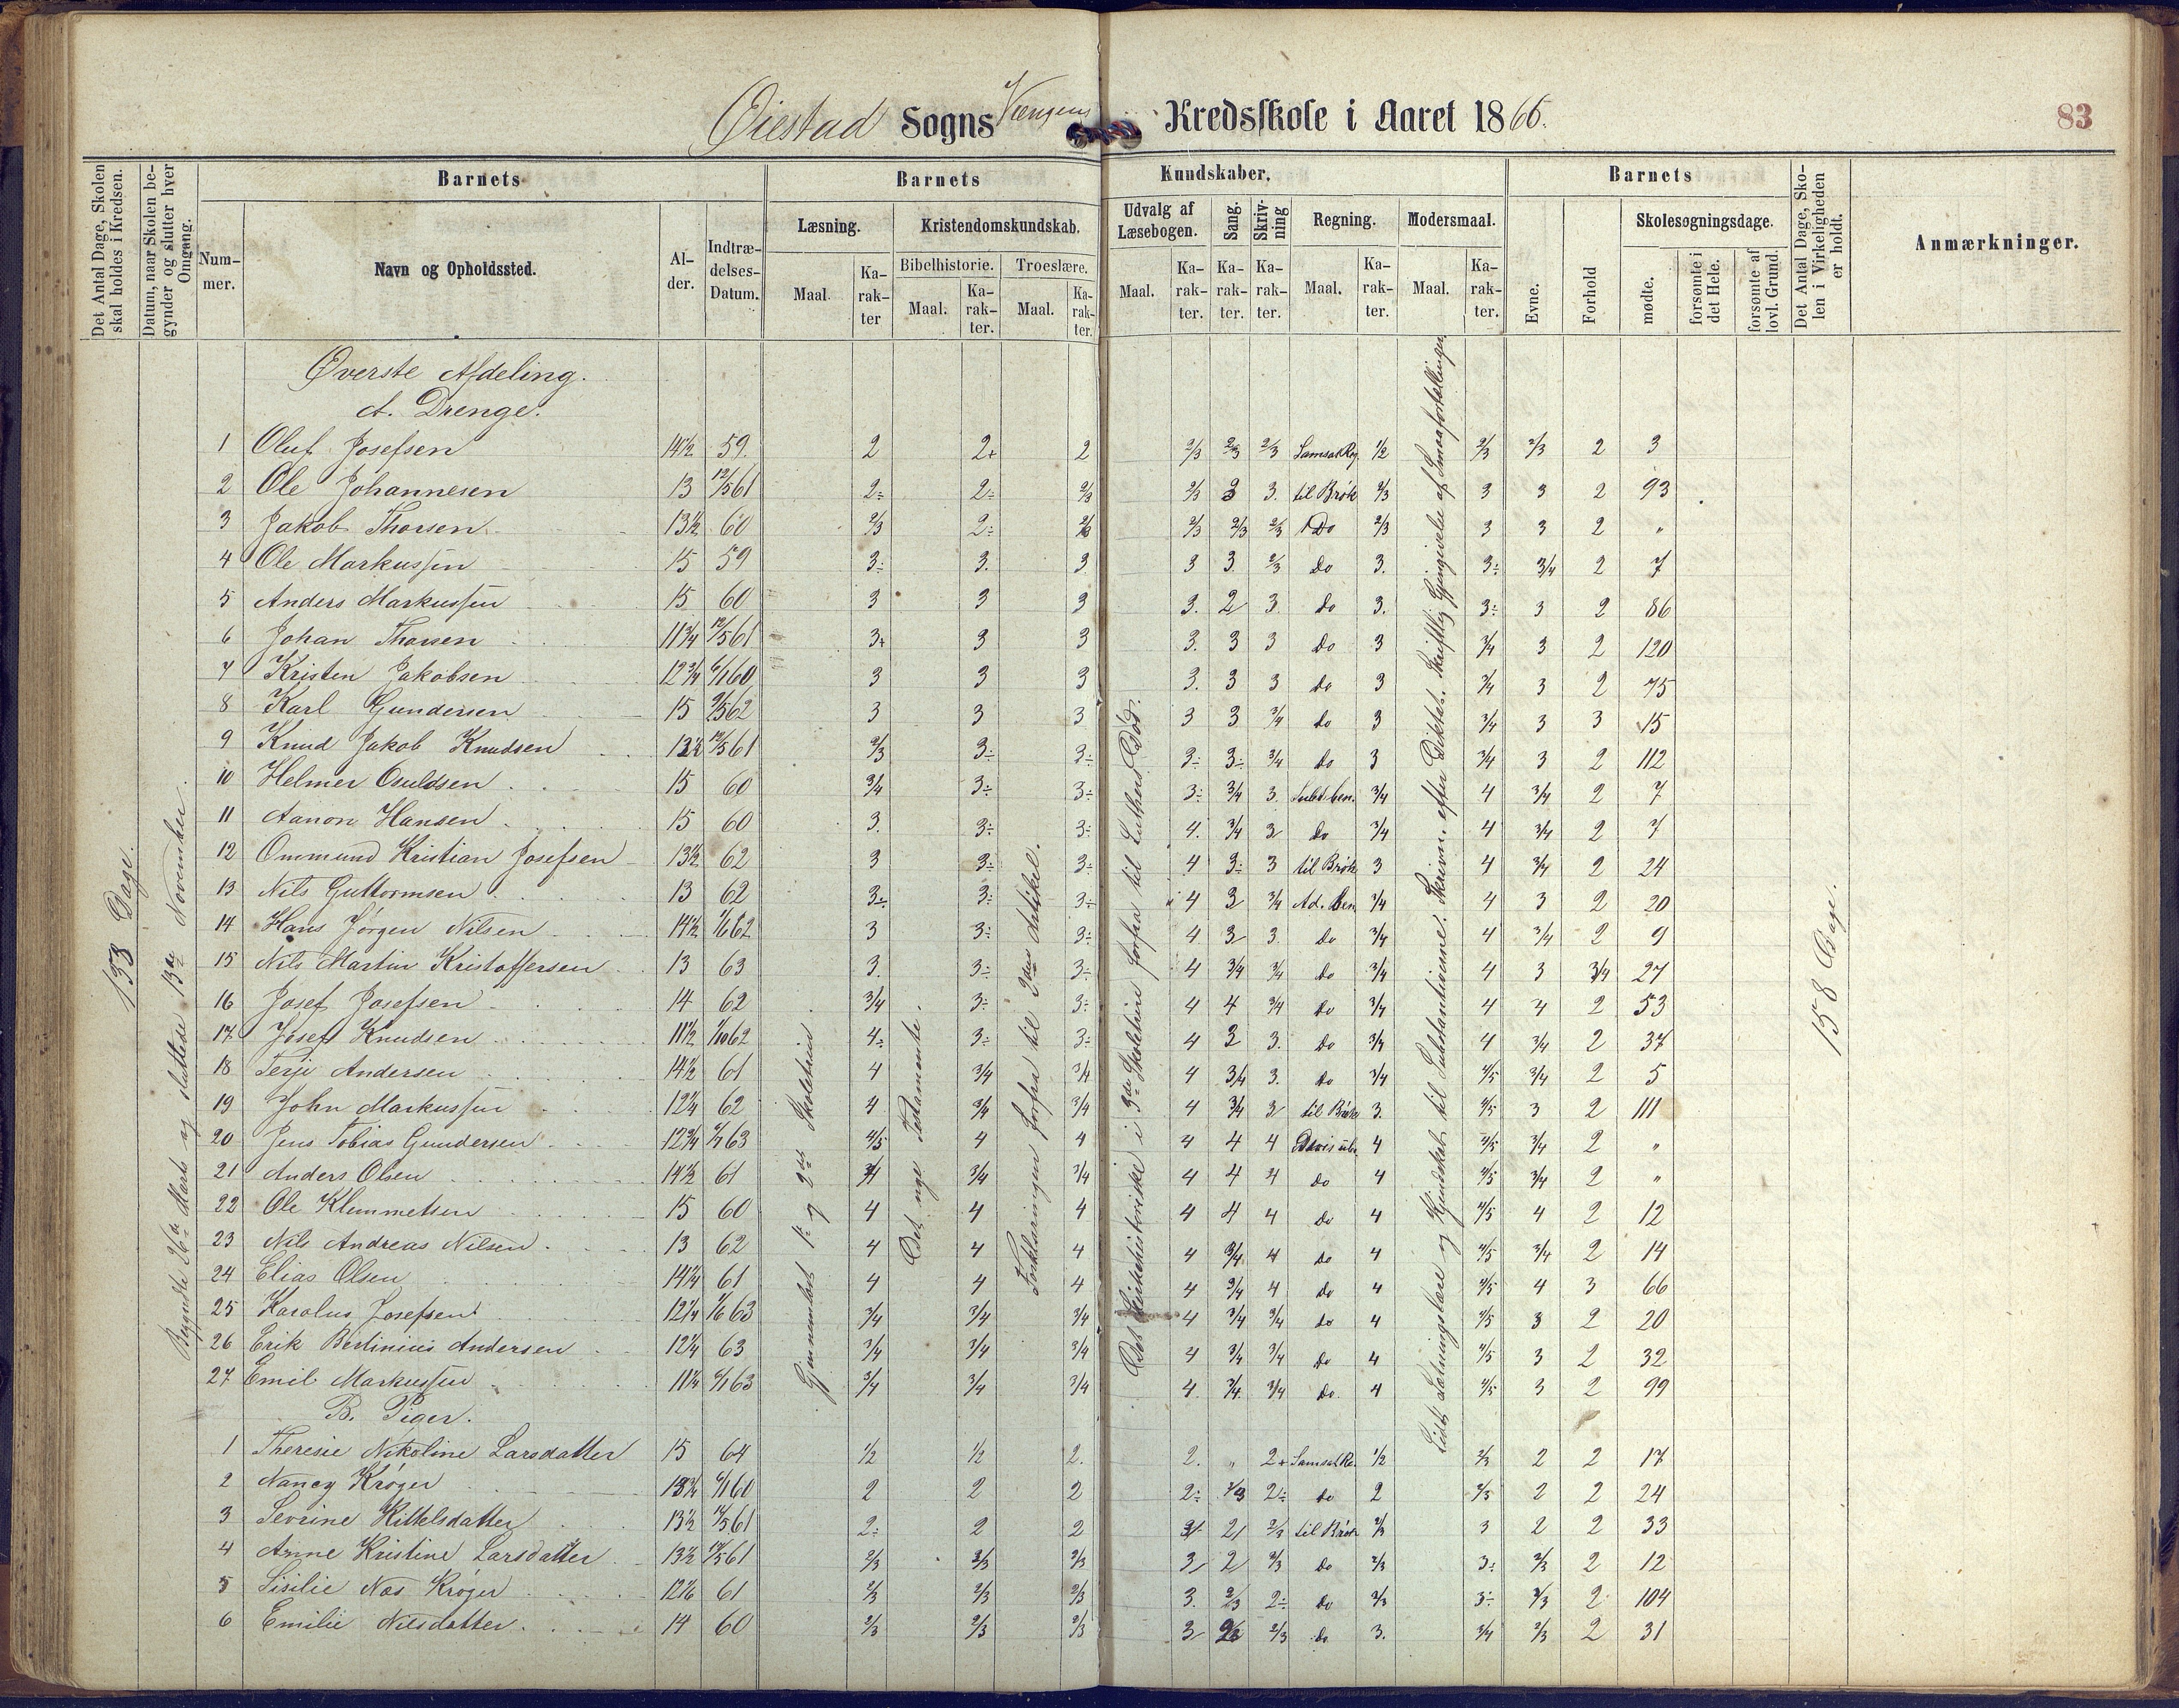 Øiestad Sogns Vængens Kredsskole i Aaret 1866.
83
Det Antal Dage, Skolen skal holdes i Kredsen.
Datum, naar Skolen begynder og slutter hver Omgang.
Barnets
Barnets
Kundskaber.
Barnets
Det Antal Dage, Skolen i Virkeligheden er holdt.
Anmærkninger.
Nummer.
Navn og Opholdssted.
Alder.
Indtrædelses-Datum.
Læsning.
Kristendomskundskab.
Udvalg af Læsebogen.
Sang.
Skrivning
Regning.
Modersmaal.
Evne.
Forhold
Skolesøgningsdage.
Bibelhistorie.
Troeslære.
Maal.
Karakter
Maal.
Karakter.
Maal.
Karakter.
Maal.
Karakter.
Karakter.
Karakter.
Maal.
Karakter.
Maal.
Karakter.
mødte.
forsømte i det Hele.
forsømte af lovl. Grund.
133 Dage.
Begyndte 26de Marts og sluttede 13de November.
Gjennemlæst 1ste og 2det Skoletrin.
Det nye Testamente.
Forklaringen forfra til 3die Artikel.
Det Kirkehistoriske i 3die Skoletrin forfra til Luthers Død.
Lidt Sætningslære og Kjendskab til Substantiverne. Skrivn. efter Diktat. Skriftlig Gjengivelse af Smaafortællinger
158 Dage.
Øverste Afdeling.
A. Drenge.
1 Oluf Josefsen 14½ 59. 2 2+ 2 2/3 2/3 2/3 Samsat Reg. ½ 2/3 2/3 2 3
2 Ole Johannesen 13 12/5 61 2÷ 2÷ 2/3 2/3 3 3. til Brøk 2/3 3 3 2 93
3 Jakob Thorsen 13½ 60 2/3 2÷ 2/3 2/3 2/3 2/3 Do 2/3 3 3 2 "
4 Ole Markussen 15 59 3÷ 3. 3 3 3. 2/3 Do 3. 3÷ 3/4 2 7
5 Anders Markussen 15 60 3 3 3 3. 2 3 Do 3. 3÷ 3 2 86
6 Johan Thorsen 11¾ 12/5 61 3+ 3 3 3. 3 3 Do 3 3/4 3 2 120
7 Kristen Jakobsen 12¾ 6/1 60 3 3 3 3. 3 3 Do 3 3/4 3 2 75
8 Karl Gundersen 15 9/5 62 3 3 3 3 3 3/4 Do 3 3/4 3 3 15
9 Knud Jakob Knudsen 13½ 12/5 61 2/3 3÷ 3÷ 3÷ 3÷ 3/4 Do 3 3/4 3 2 112
10 Helmer Osuldsen 15 60 3/4 3÷ 3÷ 3÷ 3/4 3. Subt. ben. 3/4 4 3/4 2 7
11 Aanon Hansen 15 60 3. 3÷ 3÷ 4. 3/4 3 Do 3/4 4 3/4 2 7
12 Ommund Kristian Josefsen 13½ 62 3 3÷ 3÷ 4 3÷ 3 til Brøk 3 4 3/4 2 24
13 Nils Guttormsen 13 62 3÷ 3÷ 3÷ 4 3 3/4 Ad. ben 3/4 4 3 2 20
14 Hans Jørgen Nilsen 14½ 1/6 62 3 3÷ 3÷ 4 3 3. Do 3/4 4 3/4 2 9
15 Nils Martin Kristoffersen 13 63 3. 3÷ 3÷ 4 3/4 3/4 Do 3/4 4 3 3/4 27
16 Josef Josefsen 14 62 3/4 3÷ 3÷ 4 4 3/4 Do 3/4 4 4 2 53
17 Josef Knudsen 11½ 1/10 62 4÷ 3÷ 3÷ 4 3 3. Do 3/4 4 3/4 2 37
18 Terje Andersen 14½ 61 4 3/4 3/4 4 3/4 3. Do 3/4 4/5 3/4 2 5
19 John Markussen 12¼ 62 4 3/4 3/4 4 3/4 3 til Brøk 3. 4/5 3 2 111
20 Jens Tobias Gundersen 12¾ 63 4/5 4 4 4 4 4 4 4/5 3/4 2 "
21 Anders Olsen 14½ 61 3/4 3/4 3/4 4 4 4 Do 4 4/5 3/4 2 "
22 Ole Klemmetsen 15 60 4 4 4 4 4 4 Do 4 4/5 4 2 12
23 Nils Andreas Nilsen 13 62 4 4 4 4 3/4 4 Do 4 4/5 3/4 2 14
24 Elias Olsen 14¼ 61 4 4 4 4 3/4 4 Do 4 4/5 4 3 66
25 Karolus Josefsen 12¼ 1/6 63 3/4 3/4 3/4 4 3/4 3/4 Do 4 4/5 3 2 20
26 Erik Bertinius Andersen 12¼ 63 3/4 3/4 3/4 4 3/4 3/4 Do 4 4/5 3 2 32
27 Emil Markussen 11¼ 6/1 63 3/4 3/4 3/4 4. 3/4 3/4 Do. 4 4/5 3 2 99
B. Piger.
1 Theresie Nikoline Larsdatter 15 64 ½ ½ 2. 2. " 2+ Samsat Re. ½ 2/3 2 2 17
2 Nancy Krøger 13¾ 6/1 60 2 2 2 2÷ 2/3 2÷ Do 2 2/3 2 2 24
3 Sevrine Kittelsdatter 13½ 12/5 61 2÷ 2 2 3 2 2/3 til Brøk 2/3 3 2 2 33
4 Anne Kristine Larsdatter 13½ 12/5 61 2/3 2/3 2/3 3 2 2/3 Do 2/3 3÷ 2/3 2 12
5 Sisilie Næs Krøger 61 2/3 2/3 2/3 3. 2/3 2÷ Do 2/3 3÷ 2/3 2 104
6 Emilie Nilsdatter 14 60 2/3 2/3 2/3 3 2/3 2/3 Do 3. 3/4 2/3 2 31